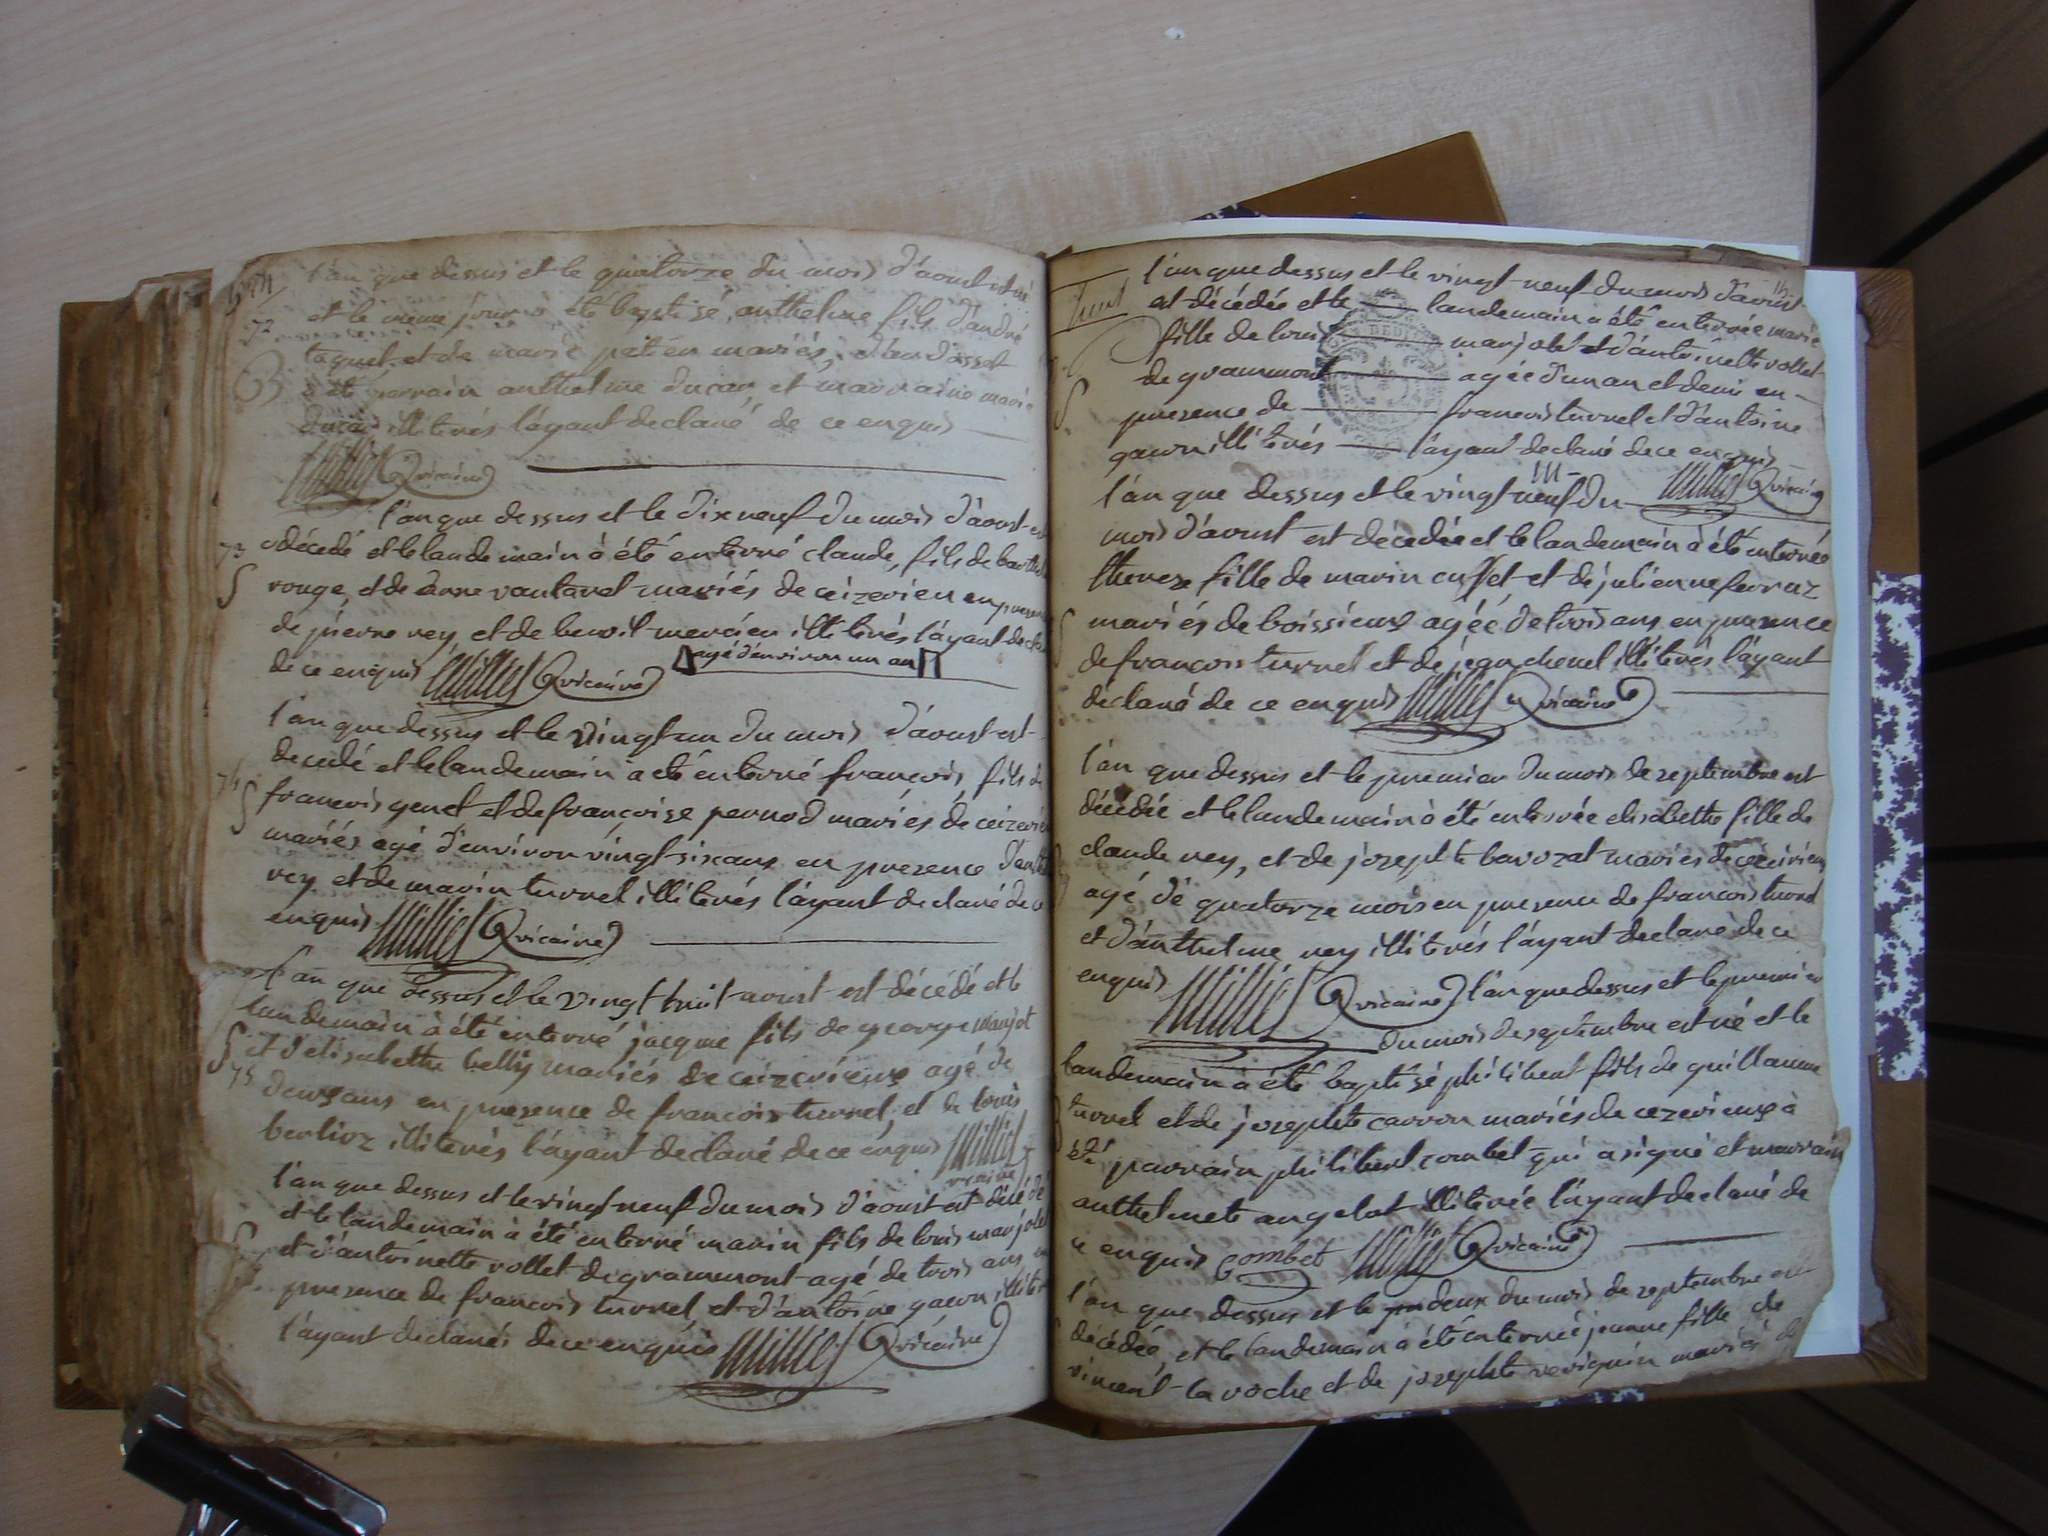 l'an que dessus et le quatorze du mois d'aoust est né
et le même jour à été baptisé anthelme fils d'andré
taquet et de marie patien mariés
à été parrain anthelme ducay et marraine marie
ducay illiterés l'ayant declaré de ce enquis
Milliet vicaire
l'an que dessus et le dix neuf du mois d'aoust est
73 décedé et le lande main à été enterré claude, fils de barth
rouge, et de anne vantaret mariés de ceizerieu en presen
de pierre rey, et de benoit mercier illiterés l'ayant decla
de ce enquis Milliet vicaire agé d'environ un an
l'an que dessus et le vingt un du mois d'aoust est
decedé et le lan demain a eté enterré francois, fils de
74 francois genet et de françoise pernod mariés de ceizerieu
mariés agé d'environ vingt six ans en presence d'anth
rey et de marin turrel illiterés l'ayant declaré de ce
enquis Milliet vicaire
l'an que dessus et le vingt huit aoust est décédé et le
landemain à été enterré jacque fils de george marjot
et d'elisabeth belly mariés de ceizerieux agé de
75 deux ans en presence de francois turrel, et de louis
berlioz illiterés l'ayant declaré de ce enquis Milliet
vicaire
l'an que dessus et le vingt neuf du mois d'aoust est décédé
et le landemain à été enterré marin fils de louis marjolet
et d'antoinette vollet de grammont agé de trois ans en
presence de francois turrel, et d'antoine gacon illiter
l'ayant declarés de ce enquis Milliet vicaire
l'an que dessus et le vingt neuf du mois d'aoust
est décédée et le landemain a été enterrée marie
fille de louis marjolet et d'antoinette vollet
de grammont agée d'un an et demi en
presence de francois turrel et d'antoine
gacon illiterés l'ayant declaré de ce enquis
Milliet vicaire
l'an que dessus et le vingt neuf du
mois d'aoust est décédée et le landemain à été enterrée
therese fille de marin cusset et de julienne ferraz
mariés de boissieux agéé de trois ans en presence
de francois turrel et de jean chenel illiterés l'ayant
declaré de ce enquis Milliet vicaire
l'an que dessus et le premier du mois de septembre est
décédée et le landemain à été enterrée elisabethe fille de
claude rey, et de josephte bavozat mariés de ceizerieux
agé dé quatorze mois en presence de francois turrel
et d'anthelme rey illiterés l'ayant declaré de ce
enquis Milliet vicaire l'an que dessus et le premier
du mois de septembre est né et le
landemain à été baptisé philibert fils de guillaume
turrel et de josephte carron mariés de cezerieux à
été parrain philibert combet qui a signé et marrain
anthelmete angelot illiterée l'ayant declaré de
ce enquis combet Milliet vicaire
l'an que dessus et le deux du mois de septembre est
décédée, et le landemain à été enterrée jeanne fille de
vincent la roche et de josephte reviguin mariés de